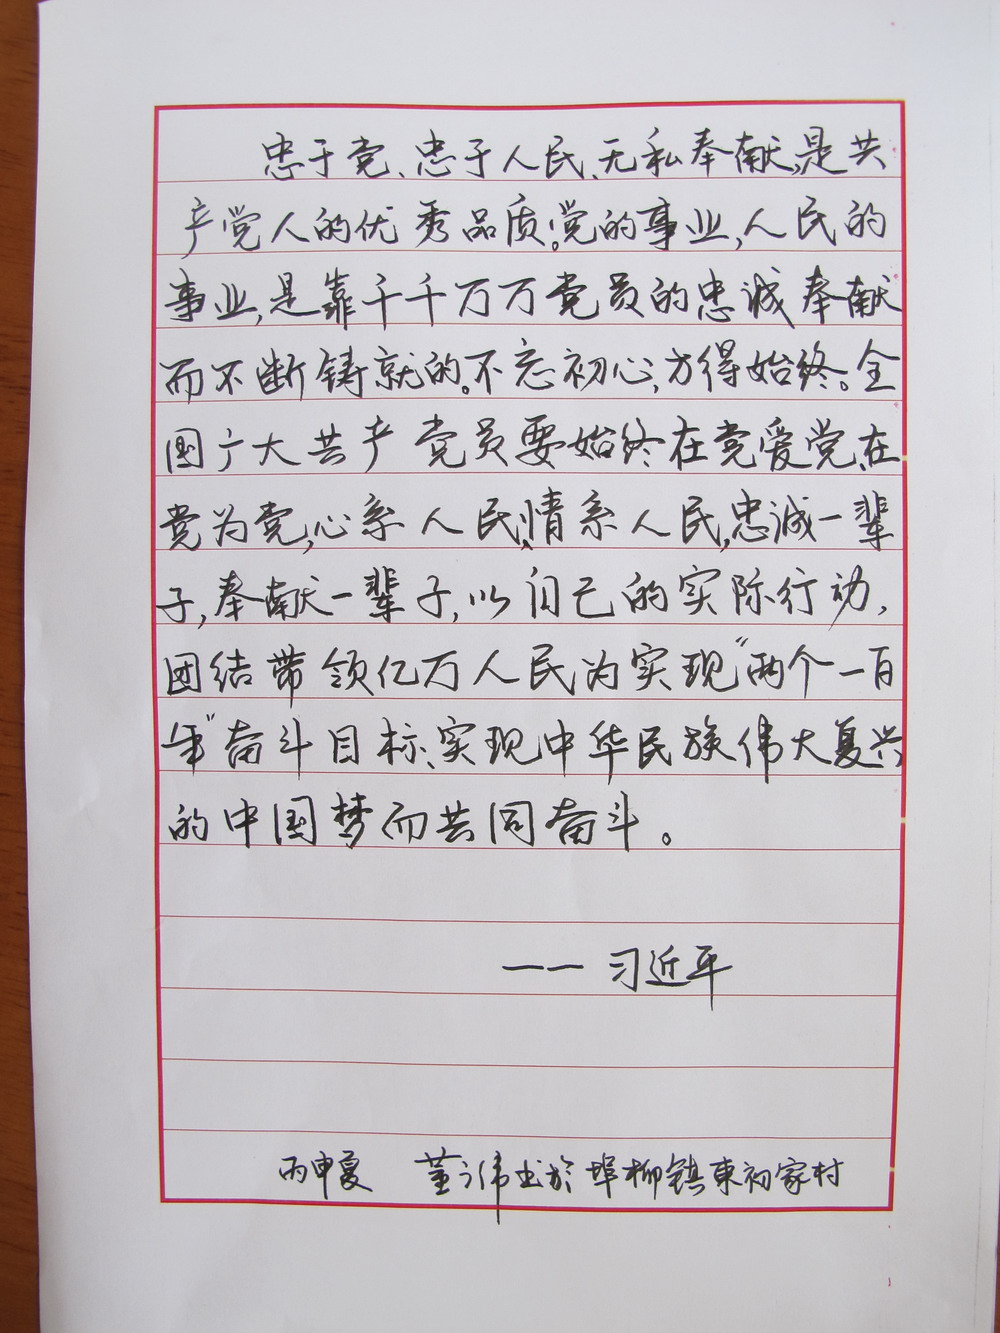 忠于党、忠于人民、无私奉献,是共
产党人的优秀品质。党的事业,人民的
事业,是靠千千万万党员的忠诚奉献
而不断铸就的。不忘初心,方得始终。全
国广大共产党员要始终在党爱党、在
党为党,心系人民、情系人民,忠诚一辈
子,奉献一辈子,以自己的实际行动,
团结带领亿万人民为实现“两个一百
年”奋斗目标、实现中华民族伟大复兴
的中国梦而共同奋斗。
——习近平
丙申夏 董 伟书於埠柳镇東初家村